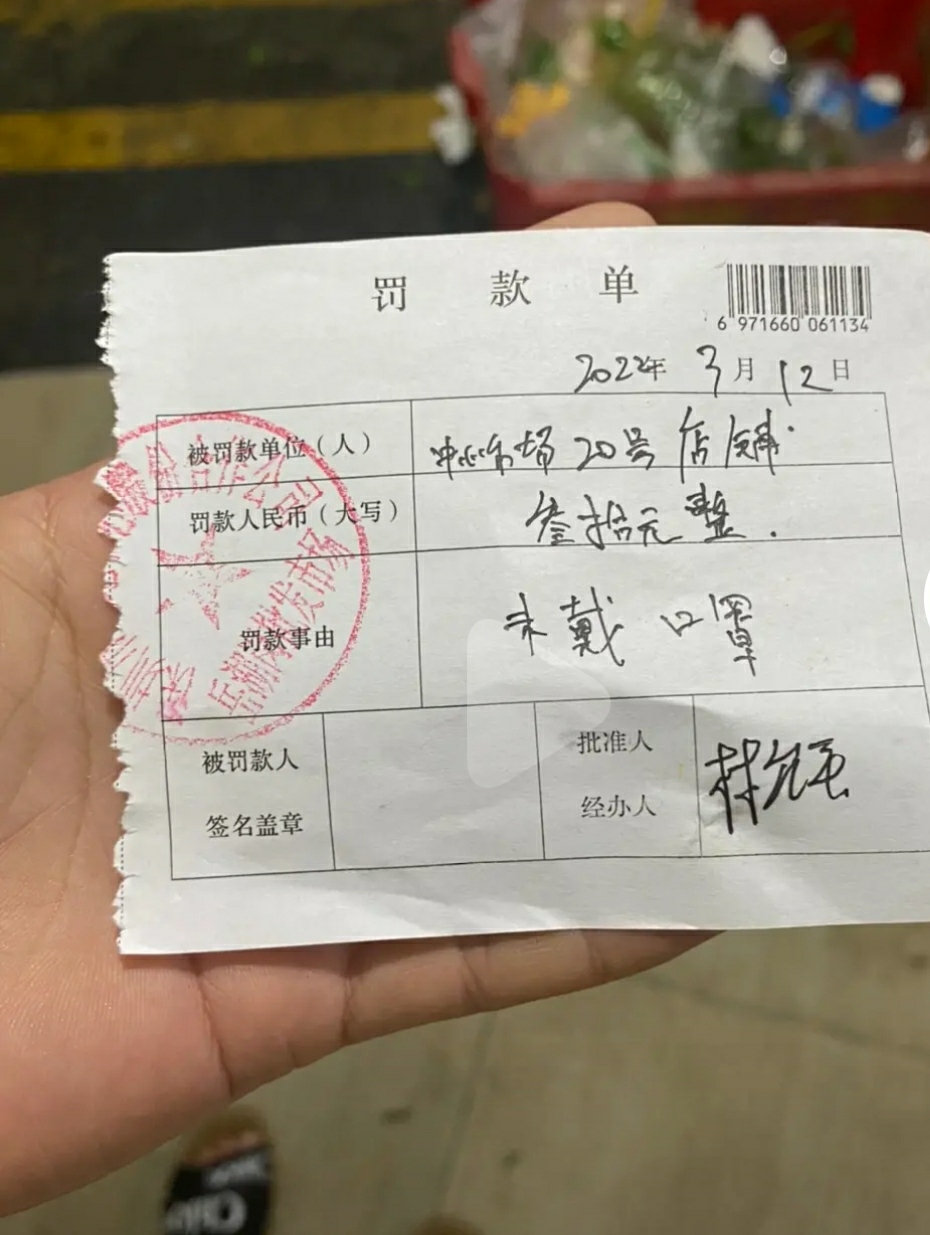 罚 款 单
6 971660 061134
2022年 3月 12日
被罚款单位（人） 中心市场 20号 店铺
罚款人民币（大写） 叁拾元 整.
罚款事由 未戴 口罩
被罚款人 批准人
签名盖章 经办人